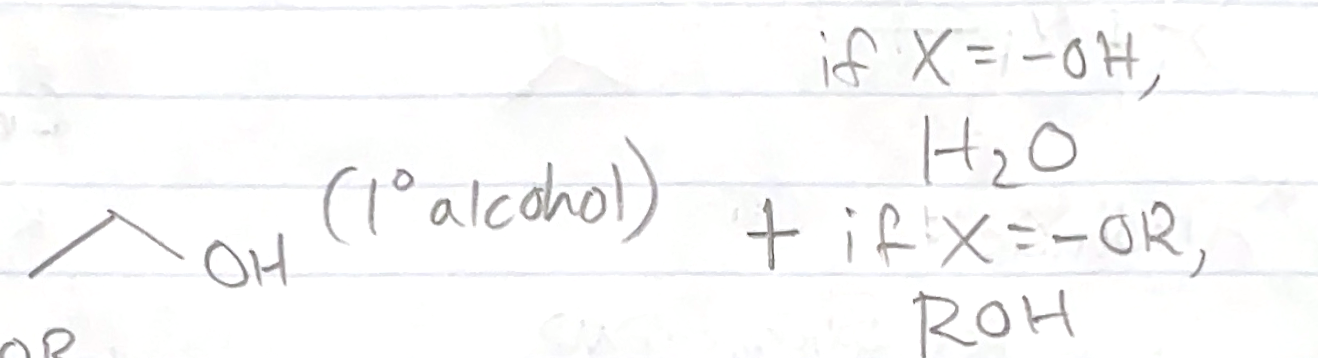 if X = -OH,
H₂O
OH (1° alcohol) + if X = -OR,
ROH
OR